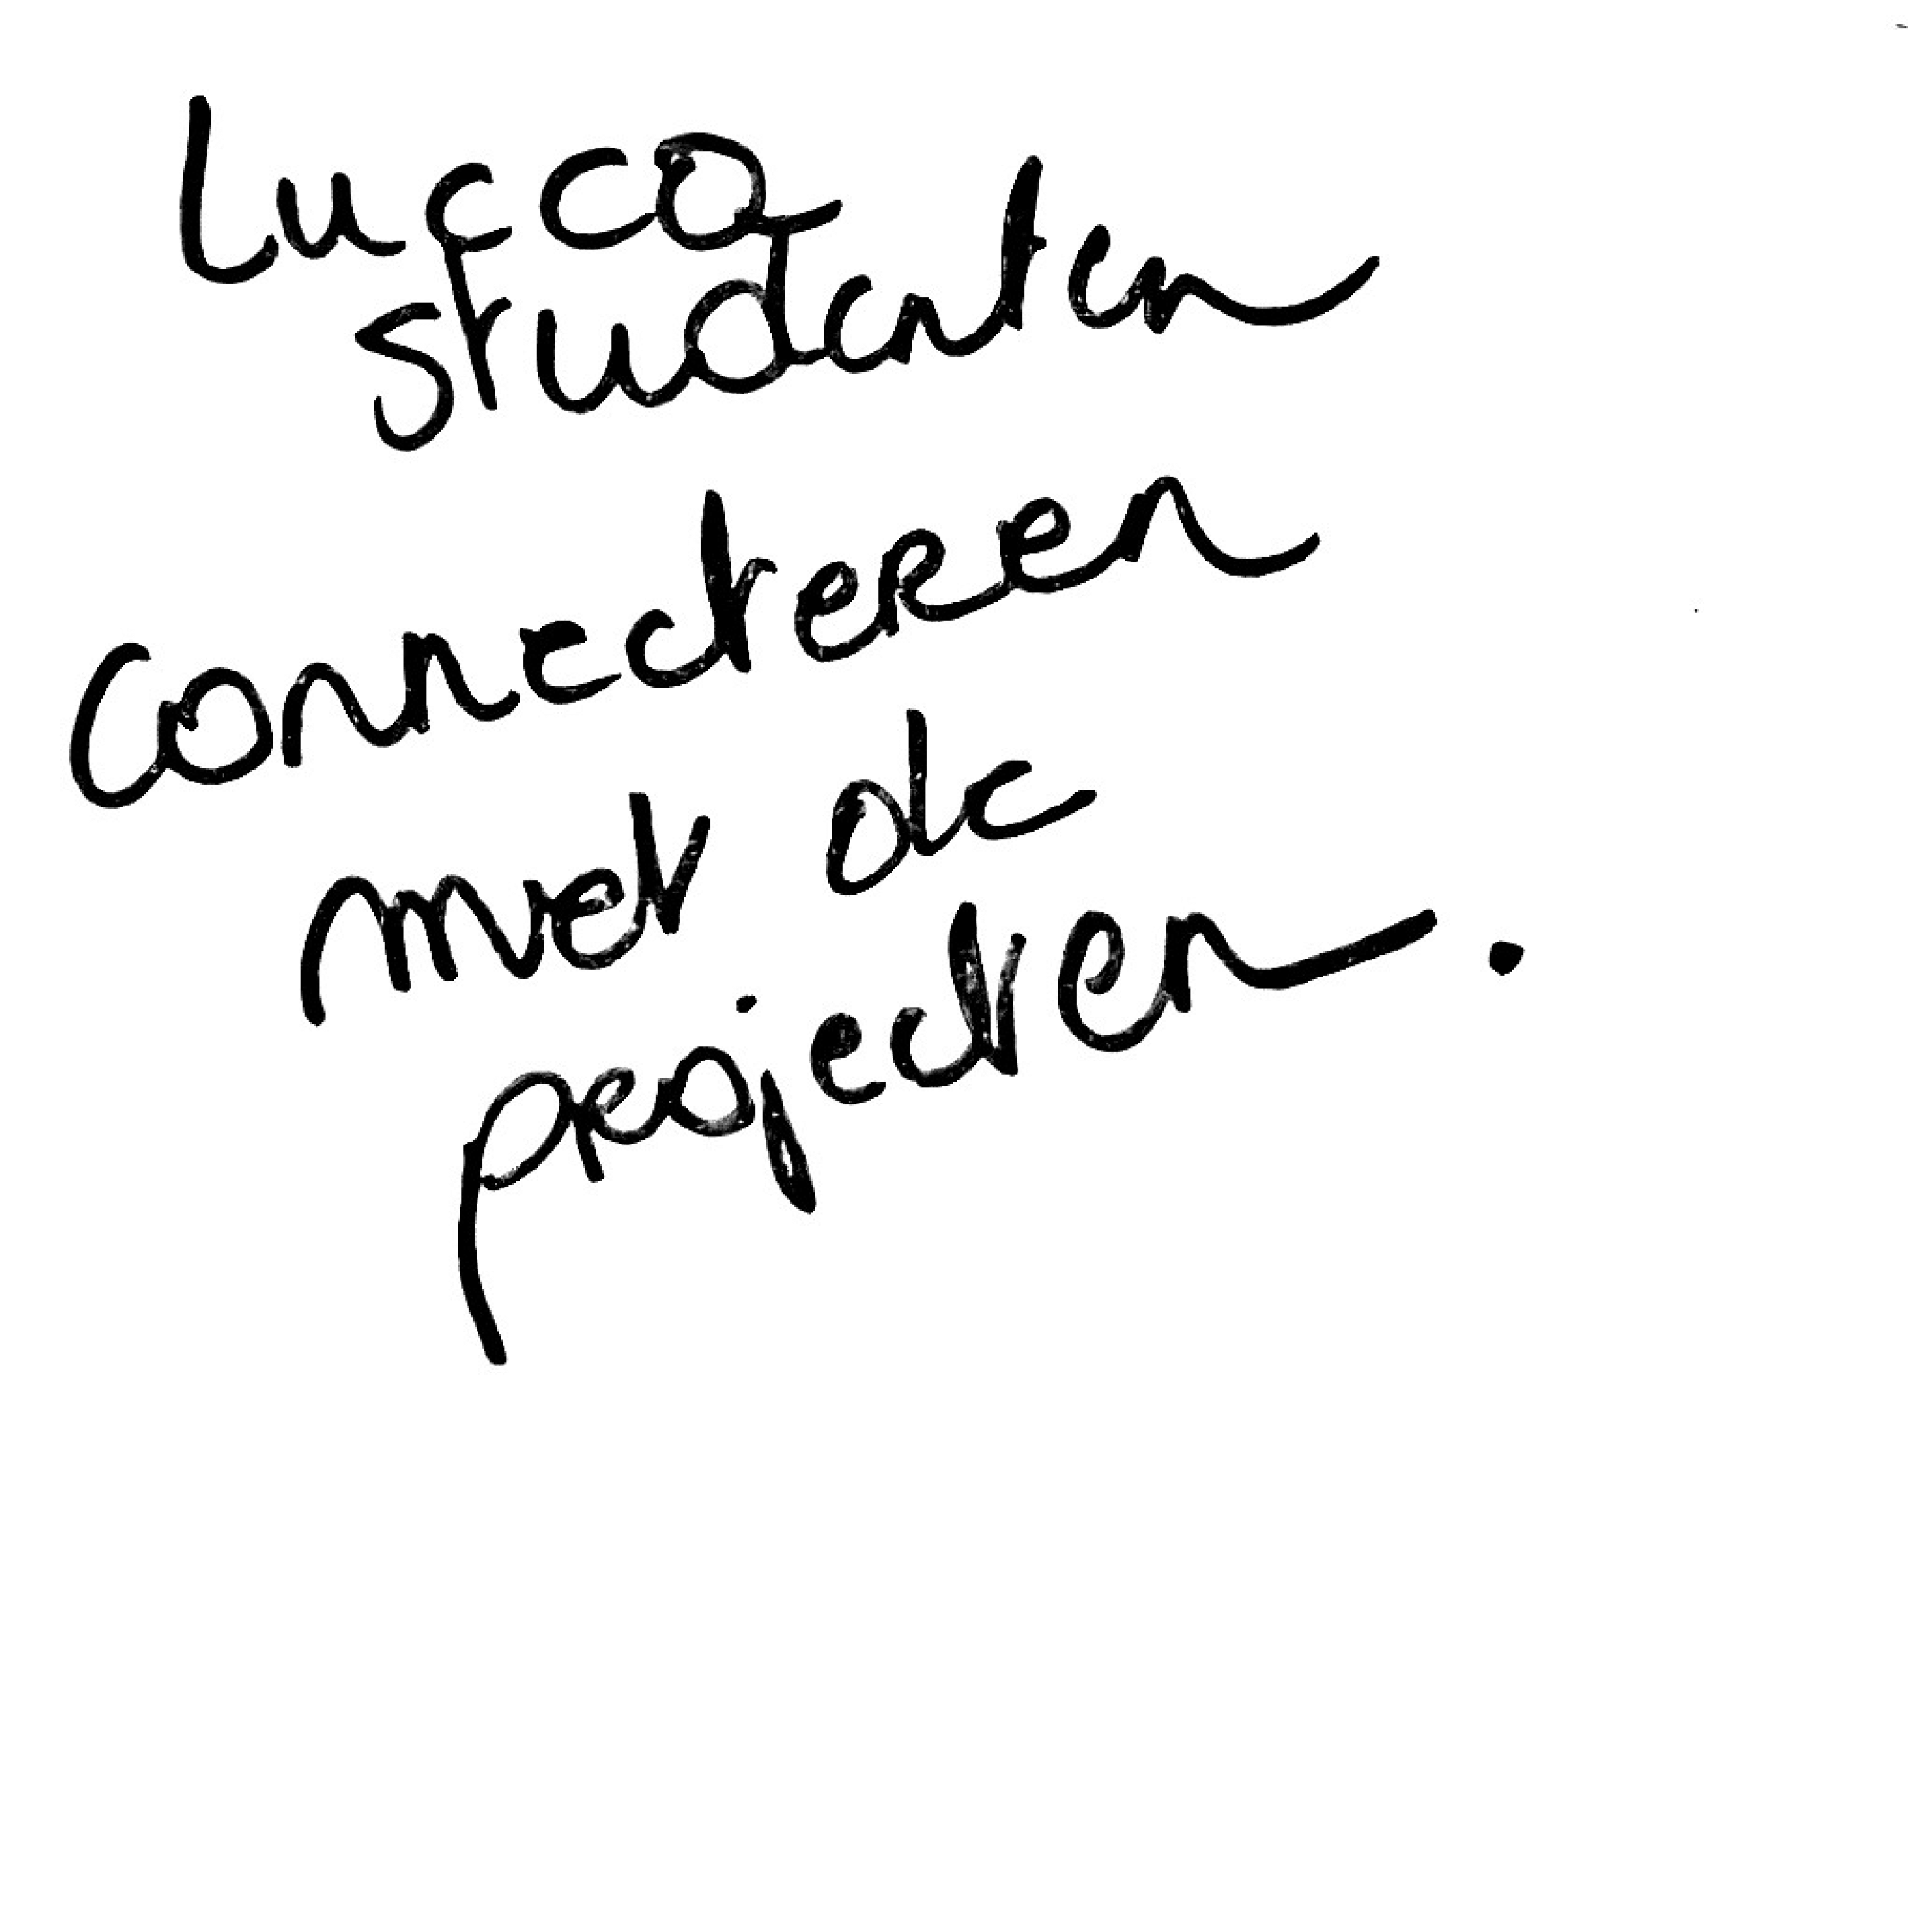 Lucca
studenten
connecteren
met de
projecten.